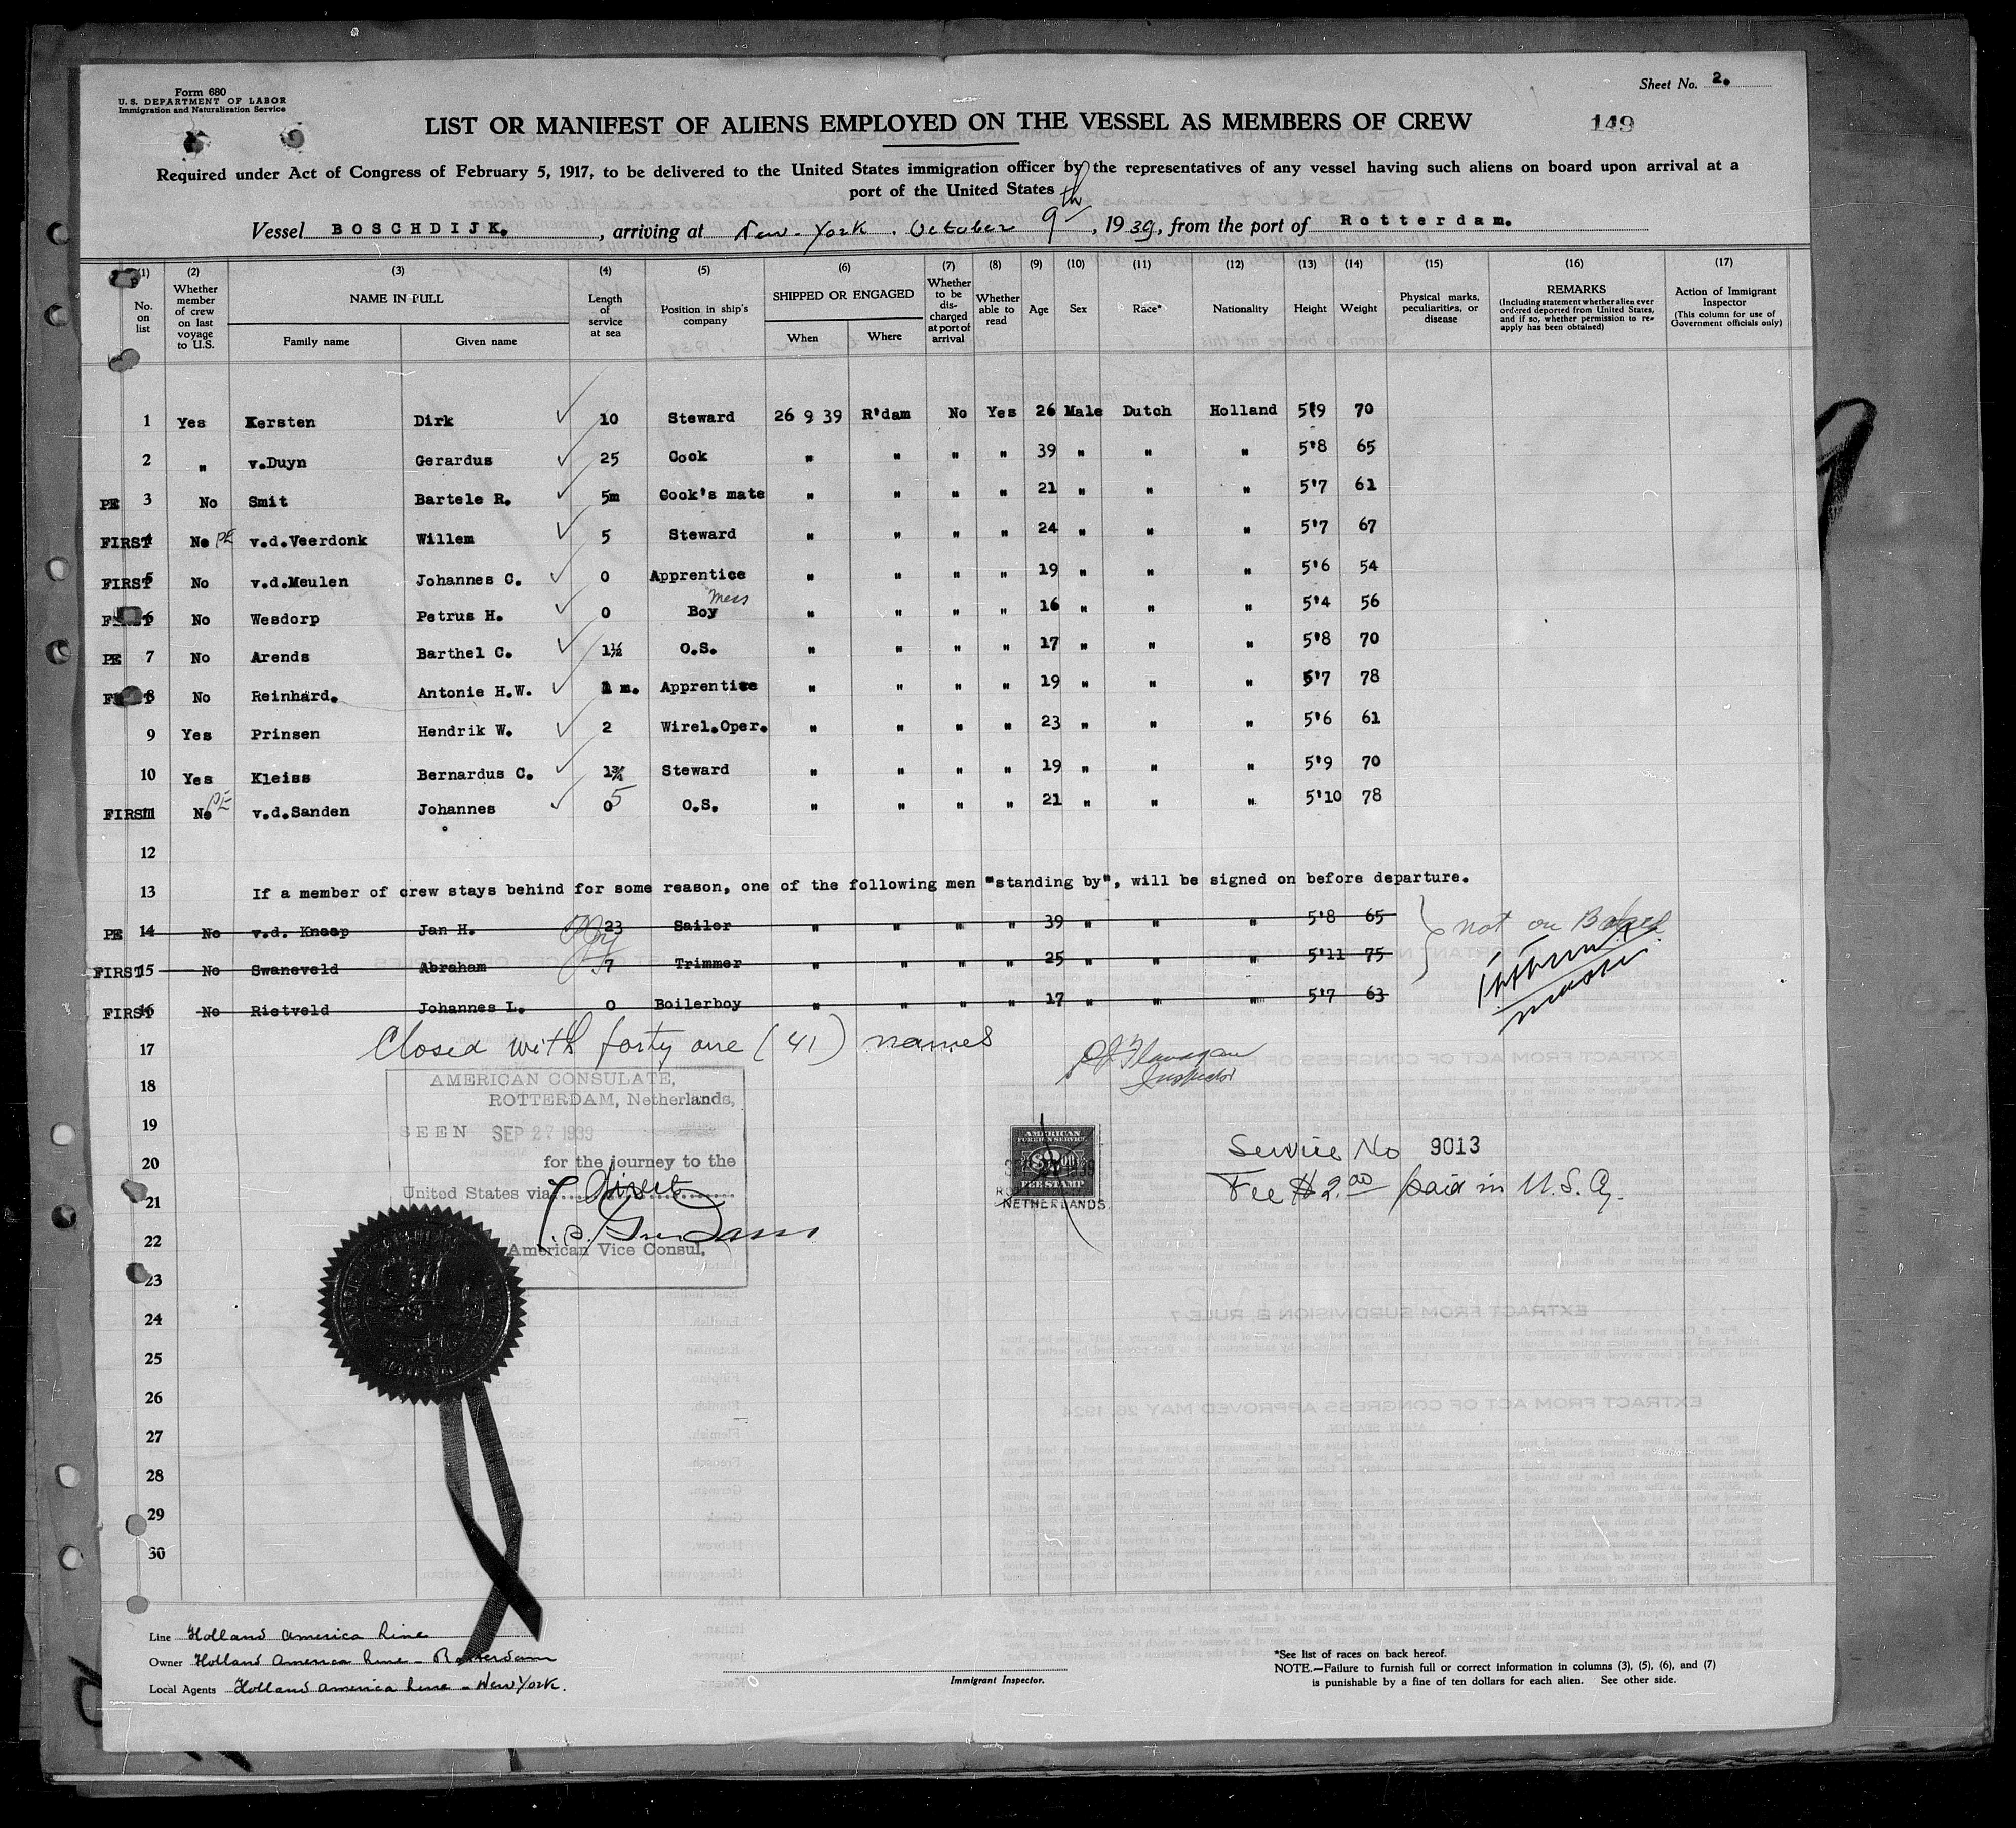 Form 680
U. S. DEPARTMENT OF LABOR
Immigration and Naturalization Service
Sheet No. 2.
LIST OR MANIFEST OF ALIENS EMPLOYED ON THE VESSEL AS MEMBERS OF CREW
149
Required under Act of Congress of February 5, 1917, to be delivered to the United States immigration officer by the representatives of any vessel having such aliens on board upon arrival at a
port of the United States
Vessel BOSCHDIJK. , arriving at New-York. October 9th , 1939, from the port of Rotterdam.
(1) (2) (3) (4) (5) (6) (7) (8) (9) (10) (11) (12) (13) (14) (15) (16) (17)
No. on list
Whether member of crew on last voyage to U.S.
NAME IN FULL
Family name
Given name
Length of service at sea
Position in ship's company
SHIPPED OR ENGAGED
When
Where
Whether to be discharged at port of arrival
Whether able to read
Age
Sex
Race*
Nationality
Height
Weight
Physical marks, peculiarities, or disease
REMARKS
(Including statement whether alien ever ordered deported from United States, and if so, whether permission to reapply has been obtained)
Action of Immigrant Inspector
(This column for use of Government officials only)
1 Yes Kersten Dirk 10 Steward 26 9 39 R'dam No Yes 26 Male Dutch Holland 5'9 70
2 " v.Duyn Gerardus 25 Cook " " " " 39 " " " 5'8 65
PE 3 No Smit Bartele R. 5m Cook's mate " " " " 21 " " " 5'7 61
FIRST 4 No PE v.d.Veerdonk Willem 5 Steward " " " " 24 " " " 5'7 67
FIRST 5 No v.d.Meulen Johannes C. 0 Apprentice " " " " 19 " " " 5'6 54
FIRST 6 No Wesdorp Petrus H. 0 Mess Boy " " " " 16 " " " 5'4 56
PE 7 No Arends Barthel C. 1½ O.S. " " " " 17 " " " 5'8 70
FIRST 8 No Reinhard. Antonie H.W. 1 m. Apprentice " " " " 19 " " " 5'7 78
9 Yes Prinsen Hendrik W. 2 Wirel.Oper. " " " " 23 " " " 5'6 61
10 Yes Kleiss Bernardus C. 1¾ Steward " " " " 19 " " " 5'9 70
FIRST 11 No PE v.d.Sanden Johannes 0 5 O.S. " " " " 21 " " " 5'10 78
12
13 If a member of crew stays behind for some reason, one of the following men "standing by", will be signed on before departure.
PE 14 No v.d. Knaap Jan H. 23 Sailor " " " " 39 " " " 5'8 65 not on Board
FIRST 15 No Swaneveld Abraham 7 Trimmer " " " " 25 " " " 5'11 75
FIRST 16 No Rietveld Johannes L. 0 Boilerboy " " " " 17 " " " 5'7 63
master
17 Closed with forty one (41) names
Flanagan
Inspector
18
AMERICAN CONSULATE,
ROTTERDAM, Netherlands,
19
SEEN SEP 27 1939
20
for the journey to the
21
United States via direct
22
American Vice Consul,
AMERICAN
FOREIGN SERVICE
$2.00
SEP 27 1939
FEE STAMP
NETHERLANDS
Service No 9013
Fee $2.00 paid in U.S. Cy.
23
24
25
26
27
28
29
30
Line Holland America Line
Owner Holland America Line - Rotterdam
Local Agents Holland America Line - New York.
Immigrant Inspector.
*See list of races on back hereof.
NOTE.—Failure to furnish full or correct information in columns (3), (5), (6), and (7)
is punishable by a fine of ten dollars for each alien. See other side.